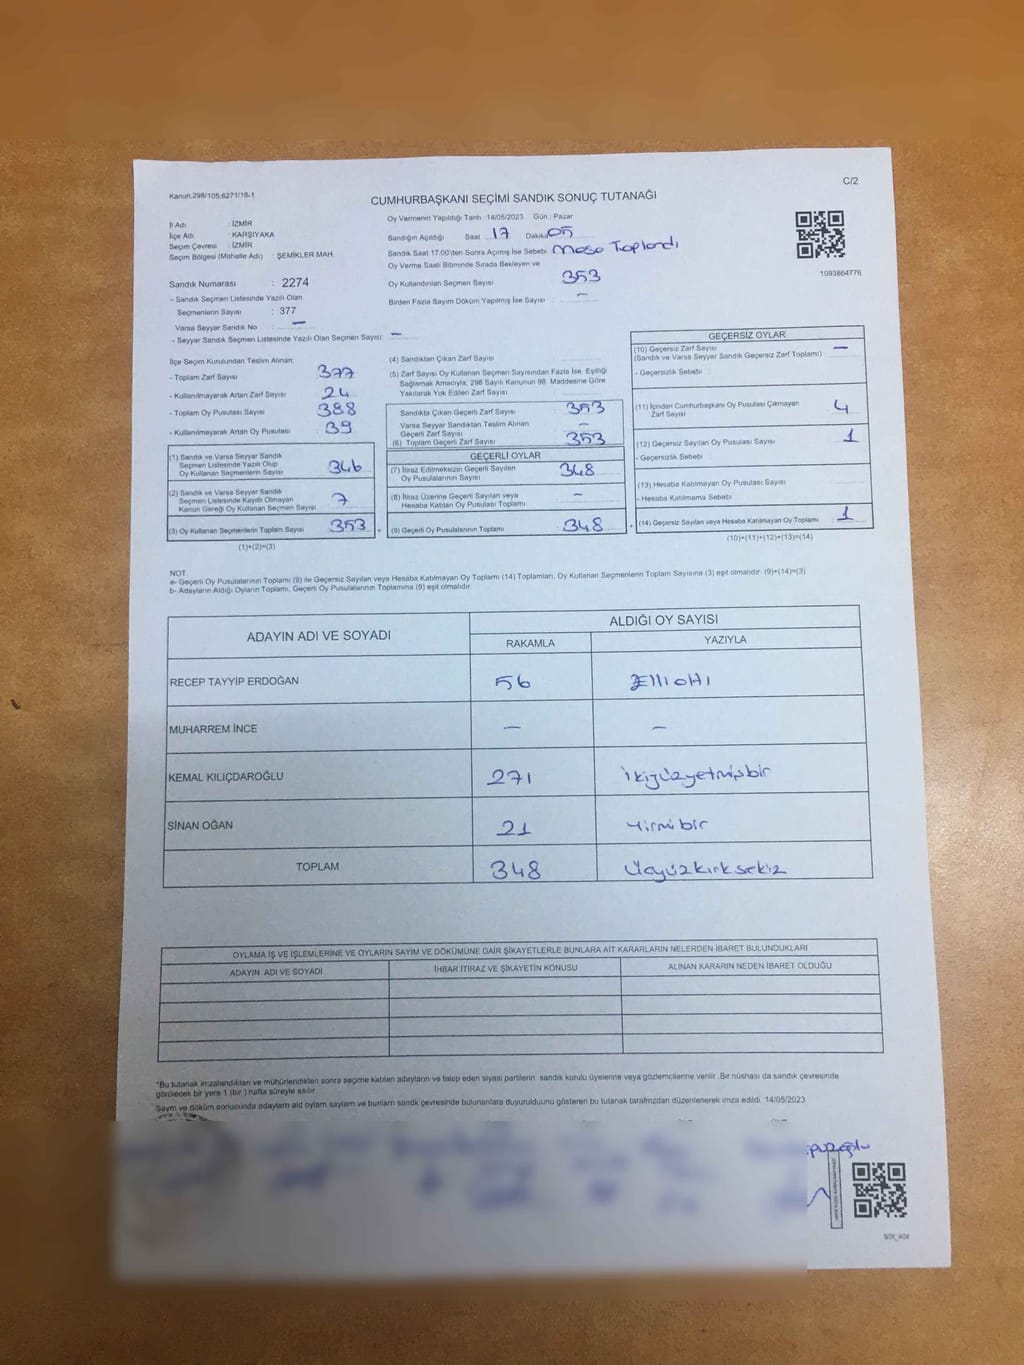 Kanun.298/105,6271/18-1
C/2
CUMHURBAŞKANI SEÇİMİ SANDIK SONUÇ TUTANAĞI
İl Adı : İZMİR
İlçe Adı : KARŞIYAKA
Seçim Çevresi : İZMİR
Seçim Bölgesi (Mahalle Adı) : ŞEMİKLER MAH.
Sandık Numarası : 2274
- Sandık Seçmen Listesinde Yazılı Olan
Seçmenlerin Sayısı : 377
Varsa Seyyar Sandık No —
- Seyyar Sandık Seçmen Listesinde Yazılı Olan Seçmen Sayısı: —
Oy Vermenin Yapıldığı Tarih :14/05/2023 Gün : Pazar
Sandığın Açıldığı Saat : 17 Dakika 05
Sandık Saat 17:00'den Sonra Açılmış İse Sebebi Masa Toplandı
Oy Verme Saati Bitiminde Sırada Bekleyen ve
Oy Kullandırılan Seçmen Sayısı : 353
Birden Fazla Sayım Döküm Yapılmış İse Sayısı : —
1093864776
İlçe Seçim Kurulundan Teslim Alınan;
- Toplam Zarf Sayısı 377
- Kullanılmayarak Artan Zarf Sayısı 24
- Toplam Oy Pusulası Sayısı 388
- Kullanılmayarak Artan Oy Pusulası 39
(1) Sandık ve Varsa Seyyar Sandık
Seçmen Listesinde Yazılı Olup
Oy Kullanan Seçmenlerin Sayısı 346
(2) Sandık ve Varsa Seyyar Sandık
Seçmen Listesinde Kayıtlı Olmayan
Kanun Gereği Oy Kullanan Seçmen Sayısı 7
(3) Oy Kullanan Seçmenlerin Toplam Sayısı 353 =
(1)+(2)=(3)
(4) Sandıktan Çıkan Zarf Sayısı
(5) Zarf Sayısı Oy Kullanan Seçmen Sayısından Fazla İse, Eşitliği
Sağlamak Amacıyla, 298 Sayılı Kanunun 98. Maddesine Göre
Yakılarak Yok Edilen Zarf Sayısı
Sandıkta Çıkan Geçerli Zarf Sayısı 353
Varsa Seyyar Sandıktan Teslim Alınan
Geçerli Zarf Sayısı —
(6) Toplam Geçerli Zarf Sayısı 353
GEÇERLİ OYLAR
(7) İtiraz Edilmeksizin Geçerli Sayılan
Oy Pusulalarının Sayısı 348
(8) İtiraz Üzerine Geçerli Sayılan veya
Hesaba Katılan Oy Pusulası Toplamı —
(9) Geçerli Oy Pusulalarının Toplamı 348 +
GEÇERSİZ OYLAR
(10) Geçersiz Zarf Sayısı —
(Sandık ve Varsa Seyyar Sandık Geçersiz Zarf Toplamı)
- Geçersizlik Sebebi :
(11) İçinden Cumhurbaşkanı Oy Pusulası Çıkmayan
Zarf Sayısı 4
(12) Geçersiz Sayılan Oy Pusulası Sayısı 1
- Geçersizlik Sebebi :
(13) Hesaba Katılmayan Oy Pusulası Sayısı
- Hesaba Katılmama Sebebi
(14) Geçersiz Sayılan veya Hesaba Katılmayan Oy Toplamı 1
(10)+(11)+(12)+(13)=(14)
NOT:
a- Geçerli Oy Pusulalarının Toplamı (9) ile Geçersiz Sayılan veya Hesaba Katılmayan Oy Toplamı (14) Toplamları, Oy Kullanan Seçmenlerin Toplam Sayısına (3) eşit olmalıdır. (9)+(14)=(3)
b- Adayların Aldığı Oyların Toplamı, Geçerli Oy Pusulalarının Toplamına (9) eşit olmalıdır.
ADAYIN ADI VE SOYADI
ALDIĞI OY SAYISI
RAKAMLA YAZIYLA
RECEP TAYYİP ERDOĞAN 56 Elli altı
MUHARREM İNCE — —
KEMAL KILIÇDAROĞLU 271 ikiyüzyetmişbir
SİNAN OĞAN 21 Yirmi bir
TOPLAM 348 Üçyüzkırksekiz
OYLAMA İŞ VE İŞLEMLERİNE VE OYLARIN SAYIM VE DÖKÜMÜNE DAİR ŞİKAYETLERLE BUNLARA AİT KARARLARIN NELERDEN İBARET BULUNDUKLARI
ADAYIN ADI VE SOYADI İHBAR İTİRAZ VE ŞİKAYETİN KONUSU ALINAN KARARIN NEDEN İBARET OLDUĞU
*Bu tutanak imzalandıktan ve mühürlendikten sonra seçime katılan adayların ve talep eden siyasi partilerin sandık kurulu üyelerine veya gözlemcilerine verilir. Bir nüshası da sandık çevresinde
görülecek bir yere 1 (bir ) hafta süreyle asılır.
Sayım ve döküm sonucunda adayların aldığı oyların sayıları ve bunların sandık çevresinde bulunanlara duyurulduğunu gösteren bu tutanak tarafımızdan düzenlenerek imza edildi. 14/05/2023